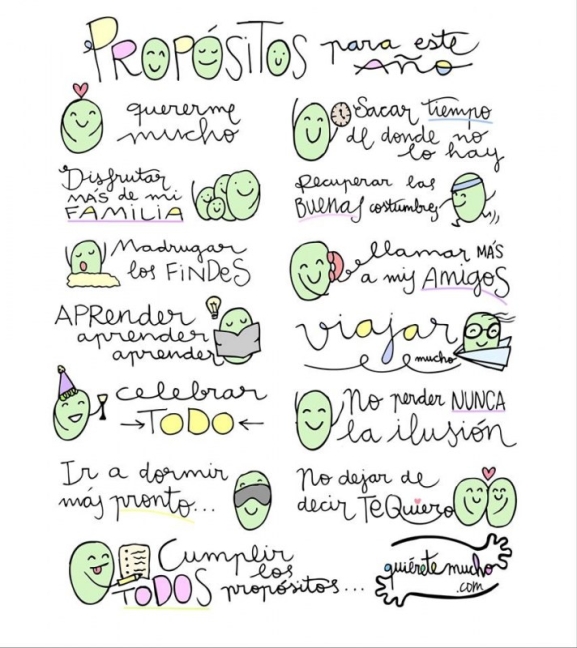 PROPÓSITOS para este
Año
quererme
mucho
Sacar tiempo
de donde no
lo hay
Disfrutar
MÁS de mi
FAMILIA
Recuperar las
BUENAS costumbres
Madrugar
los FiNDeS
llamar MÁS
a mis AmiGoS
APRender
aprender
aprender
viajar
mucho
celebrar
→TODO←
No perder NUNCA
la ilusión
Ir a dormir
más pronto...
No dejar de
decir TeQuiero
Cumplir
los
TODOS propósitos...
quiéretemucho
.com